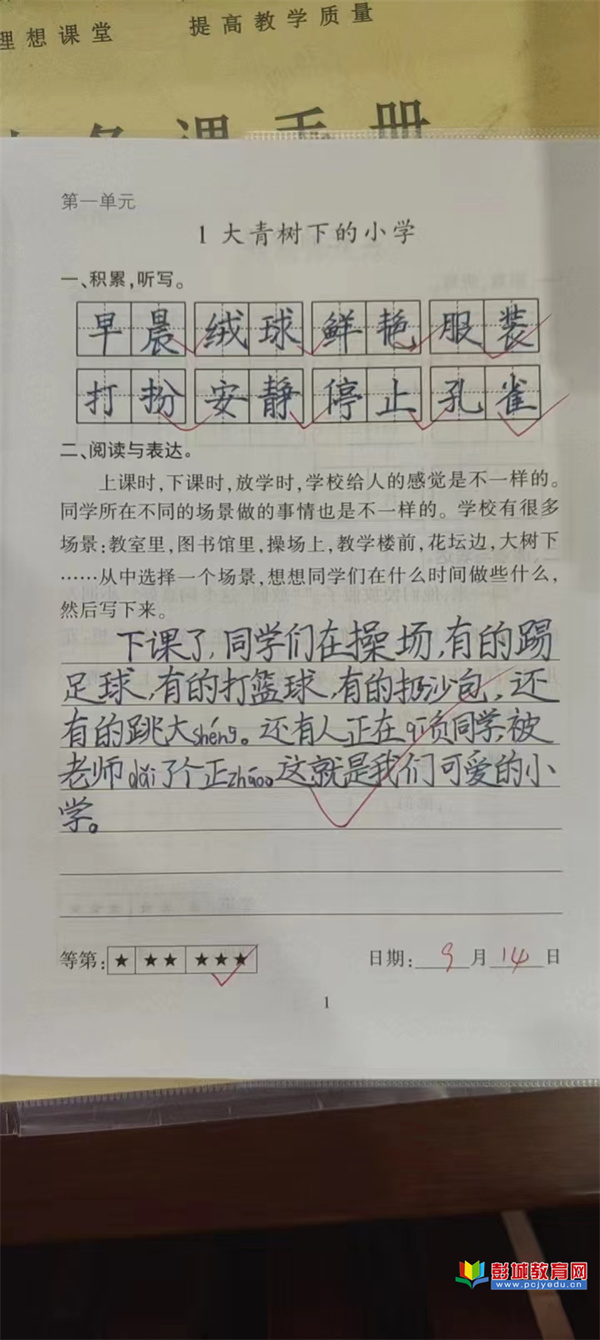 理想课堂 提高教学质量
备课手册
第一单元
1 大青树下的小学
一、积累,听写。
早晨 绒球 鲜艳 服装
打扮 安静 停止 孔雀
二、阅读与表达。
上课时,下课时,放学时,学校给人的感觉是不一样的。
同学所在不同的场景做的事情也是不一样的。学校有很多
场景:教室里,图书馆里,操场上,教学楼前,花坛边,大树下
……从中选择一个场景,想想同学们在什么时间做些什么,
然后写下来。
下课了,同学们在操场,有的踢
足球,有的打篮球,有的扔沙包,还
有的跳大shéng。还有人正在qī负同学,被
老师dǎi了个正zháo。这就是我们可爱的小
学。
等第: ★ ★★ ★★★ 日期: 9 月 14 日
1
彭城教育网
www.pcjyedu.cn